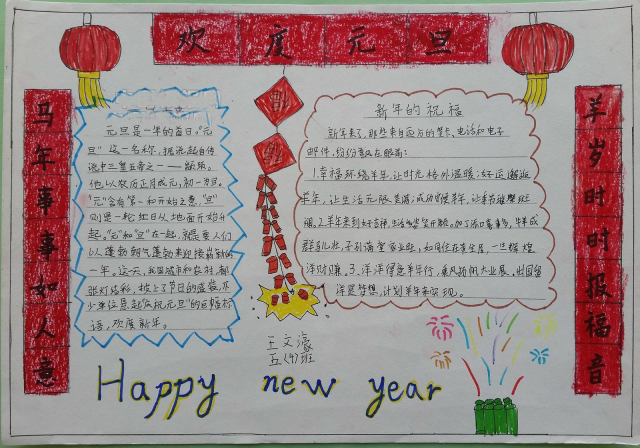 欢度元旦
马年事事如人意
元旦是一年的首日,“元
旦”这一名称,据说起自传
说中三皇五帝之一——颛顼。
他以农历正月为元,初一为旦。
“元”含有第一和开始之意,“旦”
则是一轮红日从地面开始升
起。“元”和“旦”在一起,就是要人们
以蓬勃朝气来迎接崭新的
一年。这天,我国城市和农村,都
张灯结彩,披上了节日的盛装,不
少单位悬起“庆祝元旦”的巨幅标
语,欢度新年。
福
新年的祝福
新年来了,那些来自四方的贺卡、电话和电子
邮件,纷纷飘在眼前:
1.幸福环绕羊年,让时光格外温暖;好运邂逅
羊年,让生活无限美满;成功
丽。2.羊年来到好吉祥,生活
群羊儿壮,子孙满堂事业旺,如同住在羊生屋,一些
洋财财赚。3.洋洋得意羊年行,乘风扬帆大业展,出国留
洋是梦想,计划羊年来实现。
羊岁时时报福音
王文濠
五(4)班
Happy new year